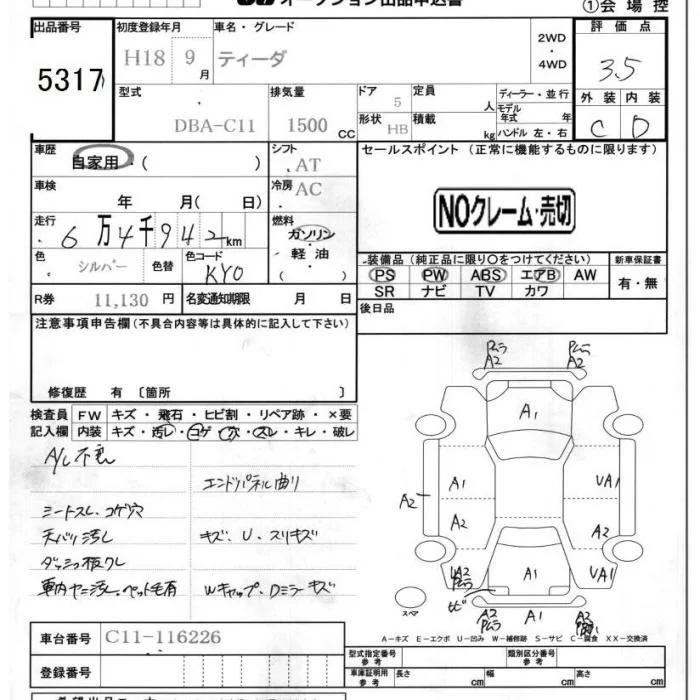 オークション出品申込書
①会場控
出品番号 初度登録年月 車名・グレード 2WD・4WD 評価点
5317 H18 9月 ティーダ 3.5
型式 排気量 ドア 定員 ディーラー・並行 外装 内装
DBA-C11 1500CC 5 人 モデル年式 年 C D
形状 HB 積載 kg ハンドル 左・右
車歴 自家用・( ) シフト AT セールスポイント (正常に機能するものに限ります)
車検 年 月( 日) 冷房 AC
NOクレーム・売切
走行 6万4千942km 燃料 ガソリン・軽油・
色 シルバー 色替 色コード KY0
装備品(純正品に限り○をつけてください) 新車保証書
PS PW ABS エアB AW 有・無
SR ナビ TV カワ
R券 11,130円 名変通知期限 月 日
後日品
注意事項申告欄(不具合内容等は具体的に記入して下さい)
修復歴 有 〔箇所 〕
検査員記入欄 FW キズ・飛石・ヒビ割・リペア跡・×要
内装 キズ・汚レ・コゲ・穴・スレ・キレ・破レ
A/C不良
エンドパネル曲り
シートスレ、コゲ穴
天バリ汚レ
キズ、U、スリキズ
ダッシュ板クレ
車内ヤニ汚レ・ペット毛有
Wキャップ、Dミラーキズ
A2 A2
A1
A1 UA1
A2
A2 A2
A2 UA1
A1
スペア
A2 A1 A2
A-キズ E-エクボ U-凹み W-補修跡 S-サビ C-腐食 XX-交換済
車台番号 C11-116226
登録番号
型式指定番号 参考 類別区分番号 参考
車庫証明用 参考 長さ cm 幅 cm 高さ cm